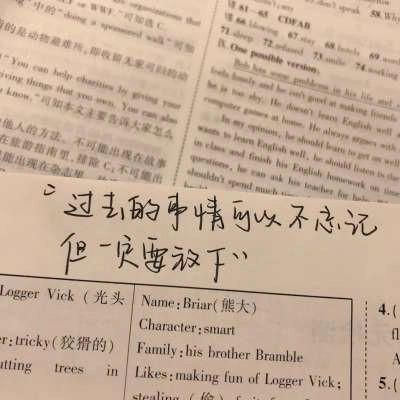 organizations that
or WWF." 可知选 C.
中的 "doing a sponsored walk" 可知
的是动物避难所,即收留无家可归的动
"You can help charities by giving your
iving things that you own. You can also
know." 可知本文主要告诉大家怎么
他人的方法。不可能出现在故事
在旅游指南里,排除 C;不可能出
能出现在杂志里
don't speak 58. Why
61—65 CDFAB
66. blowing 67. stay 68. hotels 69. word
71. sleep 72. relaxed 73. smile 74. working
One possible version:
Bob has some problems in his life and s
feels lonely and he isn't good at making friends
he is too shy. He doesn't learn English well a
computer games at home. He always argues with
In my opinion, he should learn to get on well
wants to learn English well, he should listen to the
in class and finish his English homework on time
questions, he can ask his teacher for help. B
shouldn't spend much time
“过去的事情可以不忘记
但一定要放下”
Logger Vick (光头
er: tricky(狡猾的)
utting trees in
Name: Briar(熊大)
Character: smart
Family: his brother Bramble
Likes: making fun of Logger Vick;
stealing (偷) fruit f
4. (
fl
A
5. (